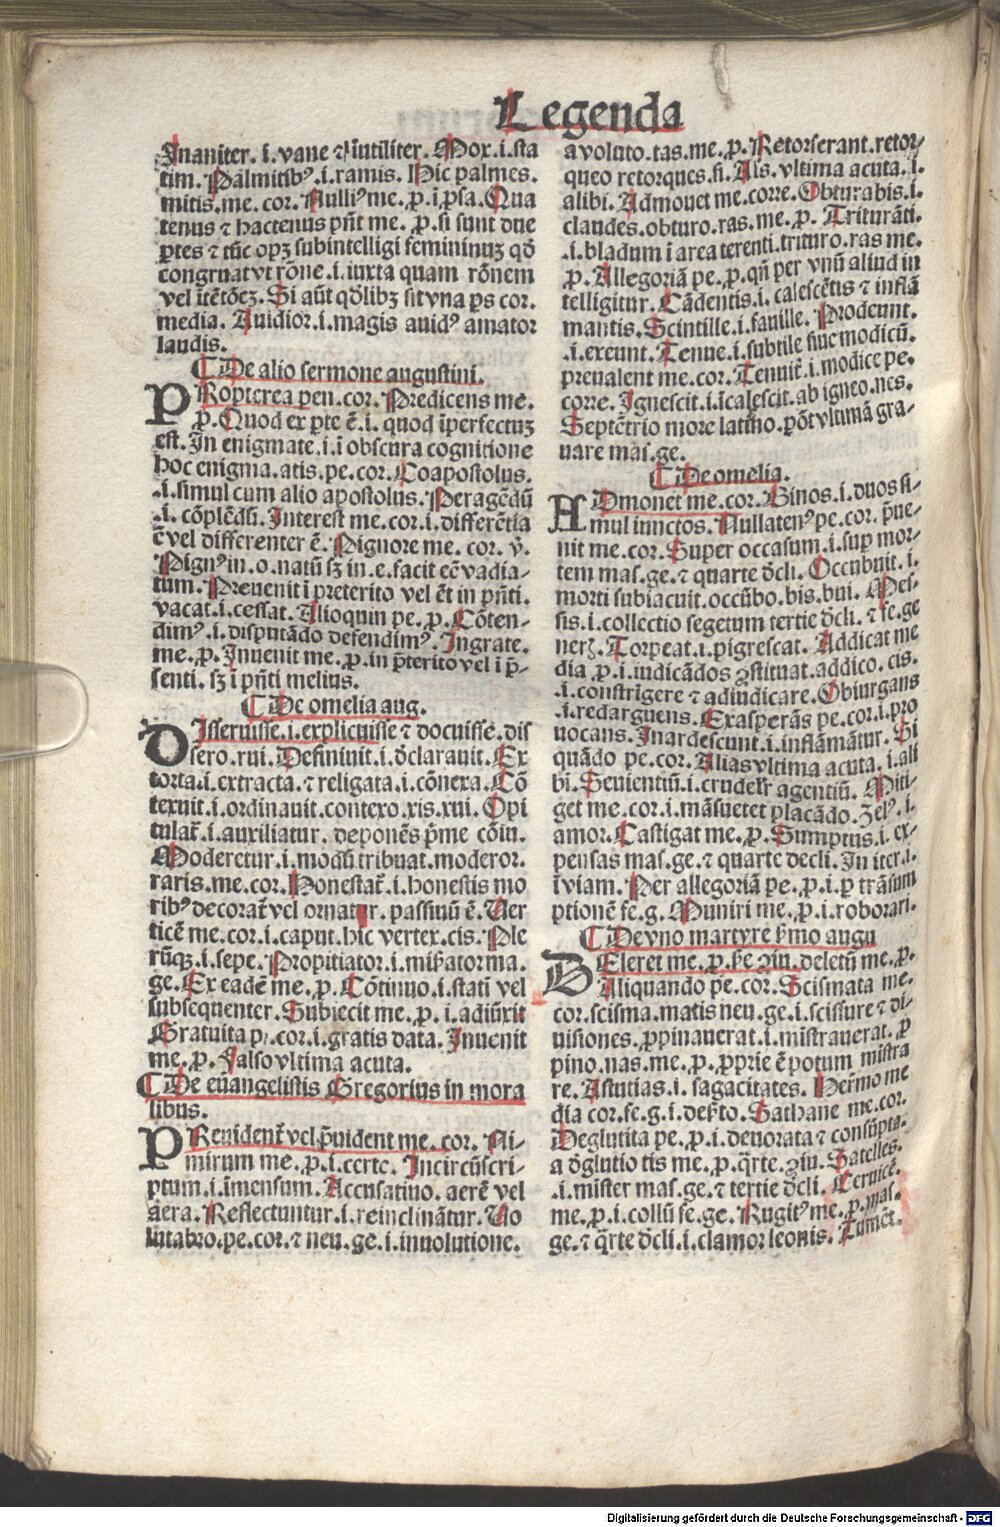 Legenda
Inaniter. i. vane ⁊ īutiliter. Mox. i. sta
tim. Palmitibꝰ. i. ramis. Hic palmes.
mitis. me. cor. Nulliꝰ me. p. ī p̄sa. Qua
tenus ⁊ hactenus pn̄t me. p. si sunt due
ꝑtes ⁊ tūc opꝫ subintelligi femininuꝫ qd̄
congruat vt rōne. i. iuxta quam rōnem
vel itētōeꝫ. Si aūt qd̄libꝫ sit vna ps cor.
media. Auidior. i. magis auidꝰ amator
laudis.
De alio sermone augustini.
PRopterea pen. cor. Predicens me.
p. Quod ex ꝑte ē. i. quod īperfectuꝫ
est. In enigmate. i. ī obscura cognitione
hoc enigma. atis. pe. cor. Coapostolus.
.i. simul cum alio apostolus. Peragēdū
.i. cōplēdū. Interest me. cor. i. differētia
ē vel differenter ē. Pignore me. cor. v̄.
Pignꝰ in. o. natū sꝫ in. e. facit ec̄ vadia-
tum. Preuenit ī preterito vel ēt in pn̄ti.
vacat. i. cessat. Alioquin pe. p. Cōten-
dimꝰ. i. disputādo defendimꝰ. Ingrate.
me. p. Inuenit me. p. in p̄terito vel ī p̄-
senti. sꝫ ī pn̄ti melius.
De omelia aug.
DIsseruisse. i. explicuisse ⁊ docuisse. dis
sero. rui. Definiuit. i. d̄clarauit. Ex
torta. i. extracta. ⁊ religata. i. cōnexa. Cō
texuit. i. ordinauit. contexo. xis. xui. Opi
tulat̄. i. auxiliatur. deponēs p̄me cōiu.
Moderetur. i. modū tribuat. moderor.
raris. me. cor. Honestat̄. i. honestis mo
ribꝰ decorat̄ vel ornatur. passiuū ē. Uer
ticē me. cor. i. caput. hic vertex. cis. Ple
rūqꝫ. i. sepe. Propitiator. i. mis̄ator ma.
ge. Ex eadē me. p. Cōtinuo. i. stati vel
subsequenter. Subiecit me. p. i. adiūxit
Gratuita p. cor. i. gratis data. Inuenit
me. p. Falso vltima acuta.
De euāngelistis Gregorius in mora
libus.
PReuident̄ vel p̄uident me. cor. Ni-
mirum me. p. i. certe. Incircūscri-
ptum. i. īmensum. Accusatiuo. aerē vel
aera. Reflectuntur. i. reinclināntur. Uo
lutabro. pe. cor. ⁊ neu. ge. i. inuolutione.
a voluto. tas. me. p. Retorserant. retor-
queo retorques. si. Al̄s. vltima acuta. i.
alibi. Admouet me. corre. Obturabis. i.
claudes. obturo. ras. me. p. Triturāti.
.i. bladum ī area terenti. trituro. ras me.
p. Allegoriā pe. p. qn̄ per vnū aliud in
telligitur. Cādentis. i. calescētis ⁊ inflā
mantis. Scintille. i. fauille. Prodeunt.
.i. exeunt. Tenue. i. subtile siue modicū.
preualent me. cor. Tenuit̄. i. modice pe.
corre. Ignescit. i. īcalescit. ab igneo. nes.
Septētrio more latino. pōt vltimā gra-
uare mas. ge.
De omelia.
ADmonet me. cor. Binos. i. duos si-
mul iunctos. Nullatenꝰ pe. cor. p̄ue-
nit me. cor. Super occasum. i. sup mor-
tem mas. ge. ⁊ quarte d̄cli. Occubuit. i.
morti subiacuit. occūbo. bis. bui. Mes-
sis. i. collectio segetum tertie d̄cli. ⁊ fe. ge
neris. Torpeat. i. pigrescat. Addicat me
dia. p. i. iudicādos ꝯstituat. addico. cis.
.i. constrīgere ⁊ adiudicare. Obiurgans
.i. redarguens. Exasperās pe. cor. i. pro
uocans. Inardescunt. i. inflāmātur. Si
quādo pe. cor. Alias vltima acuta. i. ali
bi. Seuientiū. i. crudelr̄ agentiū. Miti-
get me. cor. i. māsuetet placādo. Zelꝰ. i.
amor. Castigat me. p. Sumptus. i. ex-
pensas mas. ge. ⁊ quarte decli. In iter. i.
īviam. Per allegoriā pe. p. i. p trāsum
ptionē fe. g. Muniri me. p. i. roborari.
De vno martyre s̄mo augu
DEleret me. p. p̄te ꝯiu. deletū me. p.
Aliquando pe. cor. Scismata me.
cor. scisma. matis neu. ge. i. scissure ⁊ di-
uisiones. ꝓpinauerat. i. mīstrauerat. ꝓ
pino. nas. me. p. ꝓprie ē potum mīstra
re. Astutias. i. sagacitates. Her̄mo me
dia cor. fe. g. i. des̄to. Sathane me. cor.
Deglutita pe. p. i. deuorata ⁊ consūpta.
a d̄glutio tis me. p. q̄rte. ꝯiu. Satelles.
.i. mīster mas. ge. ⁊ tertie d̄cli. Ceruicē.
me. p. i. collū fe. ge. Rugitꝰ me. p. mas.
ge. ⁊ q̄rte d̄cli. i. clamor leonis. Tumēt.
Digitalisierung gefördert durch die Deutsche Forschungsgemeinschaft - DFG